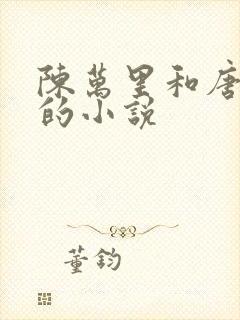 陳萬里和唐
的小說
董鈞